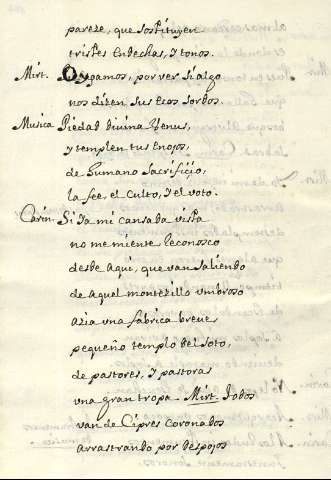 pareze, que sostituyen
tristes Endechas, y tonos.
Mirt. Oygamos, por ver si algo
nos dizen sus ecos sordos.
Musica Piedad Divina Venus,
y templen tus enojos,
de humano sacrifizio,
la fee, el culto, y el voto.
Carin. Si ya mi cansada vista
no me miente reconosco
desde aqui, que van saliendo
de aquel montezillo umbroso
azia una fabrica breve,
pequeño templo del soto,
de pastores, y pastoras
una gran tropa. Mirt. todos
van de Cipres Coronados
arrastrando por despojos